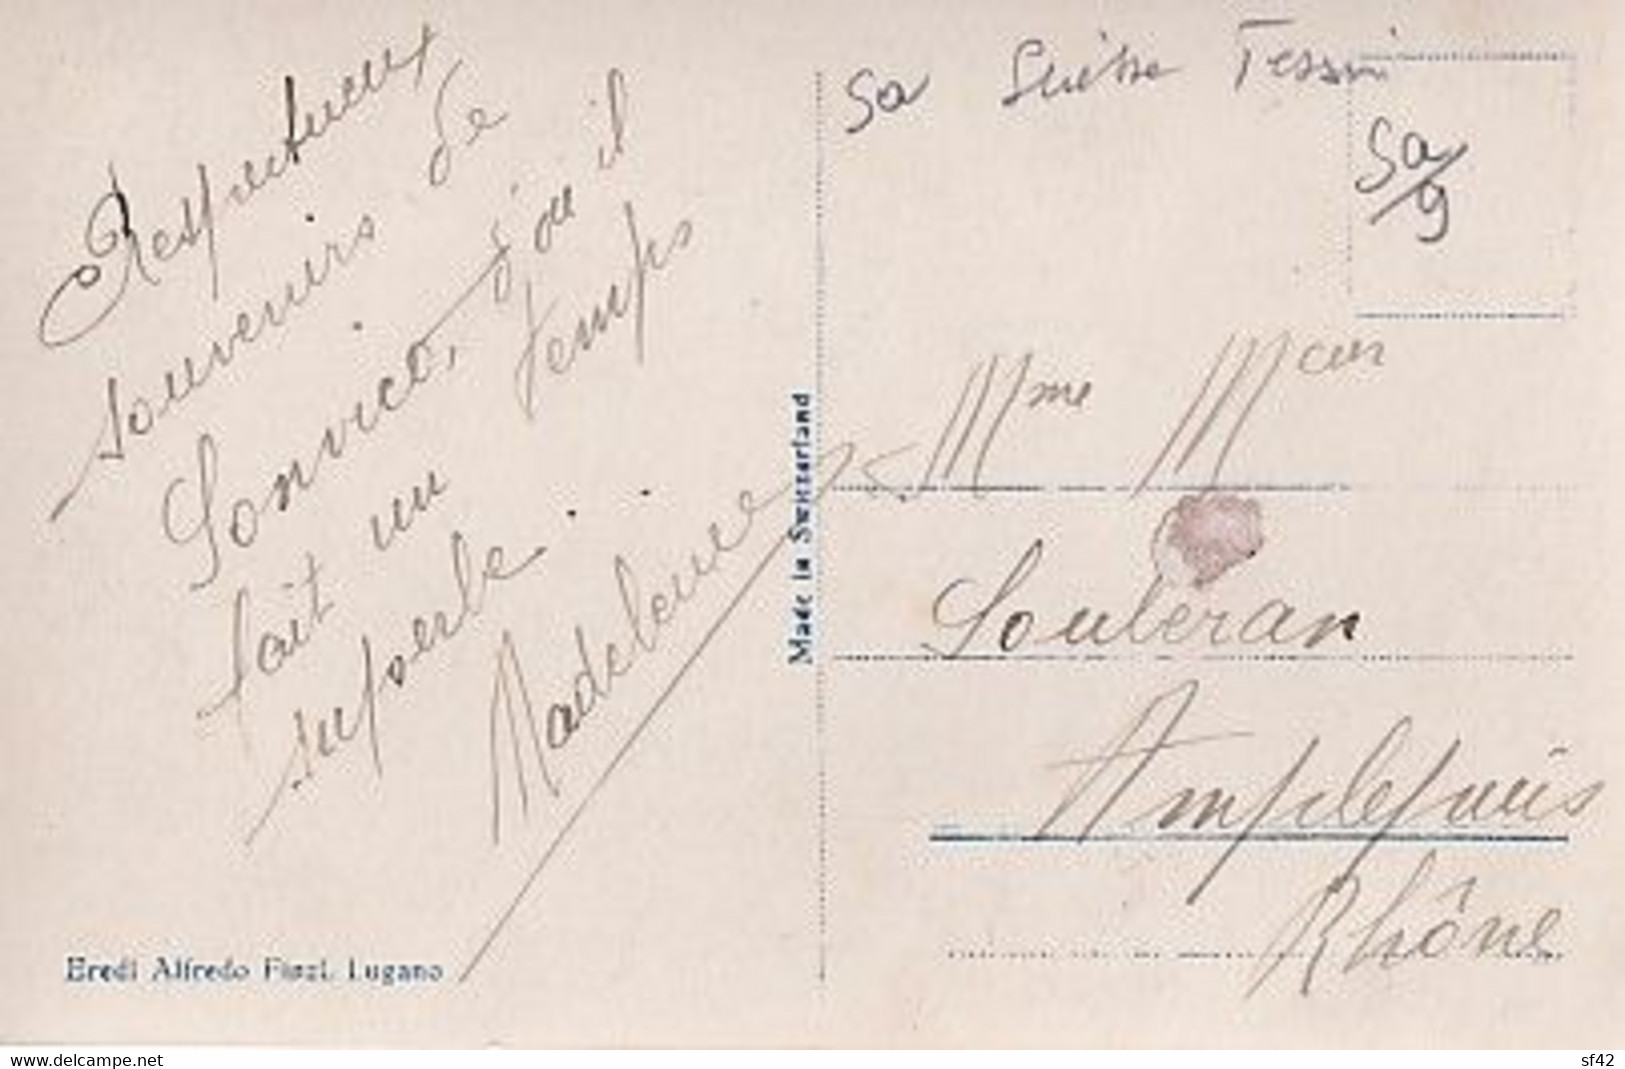 Respectueux
souvenirs de
Sonvico, d'où il
fait un temps
superbe.
Madeleine
Eredi Alfredo Finzi, Lugano
Made in Switzerland
Sa Suisse Tessin
Sa/9
Mme
Souberan
Amplepuis
Rhône
www.delcampe.net
sf42